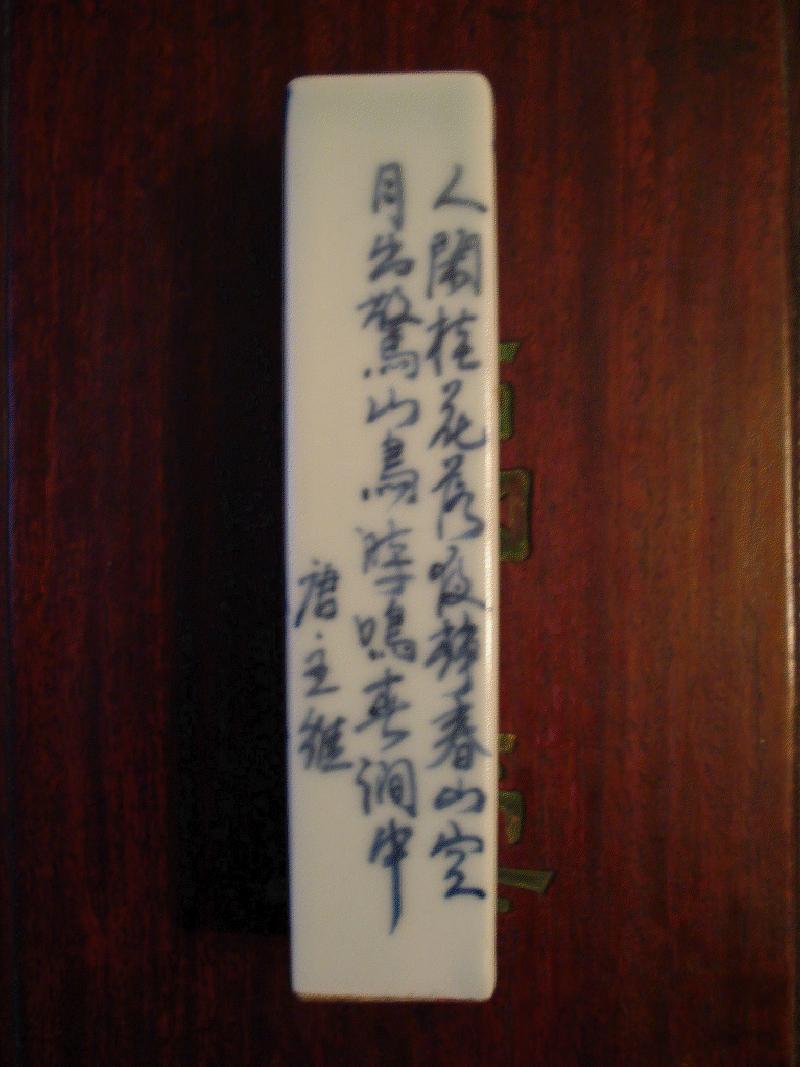 人閑桂花落夜靜春山空
月出驚山鳥時鳴春澗中
唐·王維